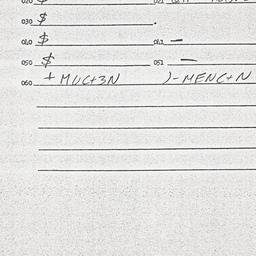 020 $ 021
030 $ .
040 $ 041 —
050 $ 051 —
060 + MUC+3N )-MENC+N